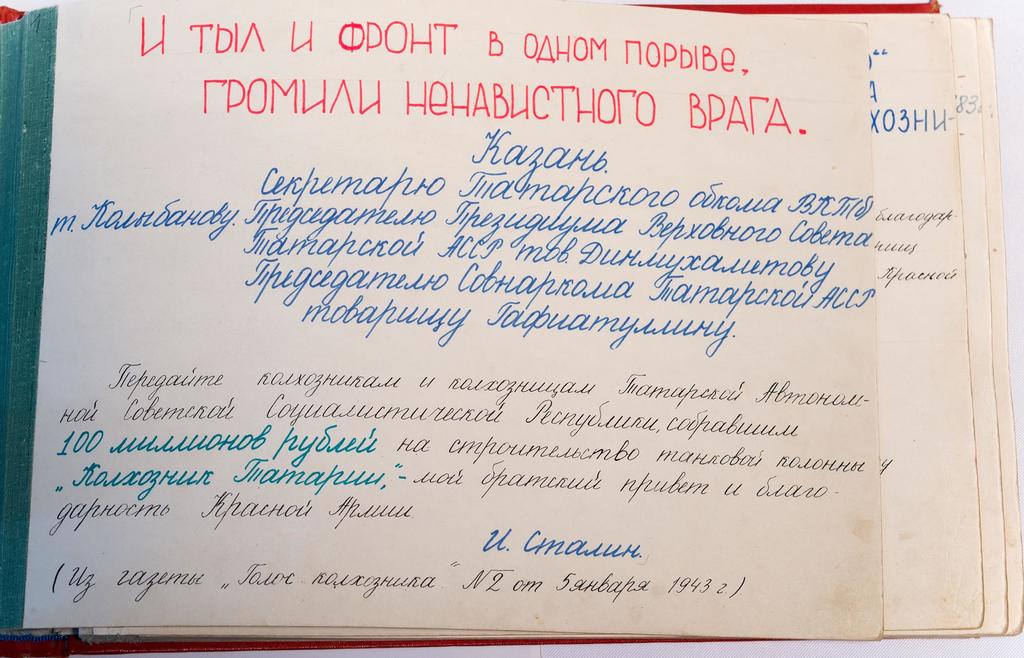 И ТЫЛ И ФРОНТ В ОДНОМ ПОРЫВЕ,
ГРОМИЛИ НЕНАВИСТНОГО ВРАГА.
Казань.
Секретарю Татарского обкома ВКПб
т. Колыбанову. Председателю Президиума Верховного Совета
Татарской АССР тов. Динмухаметову
Председателю Совнаркома Татарской АССР
товарищу Гафиатуллину.
Передайте колхозникам и колхозницам Татарской Автоном-
ной Советской Социалистической Республики, собравшим
100 миллионов рублей на строительство танковой колонны
„Колхозник Татарии", - мой братский привет и благо-
дарность Красной Армии.
И. Сталин.
(Из газеты „Голос колхозника" №2 от 5 января 1943 г.)
А
ХОЗНИ-
83г.
благодар-
ниц
Красной
у